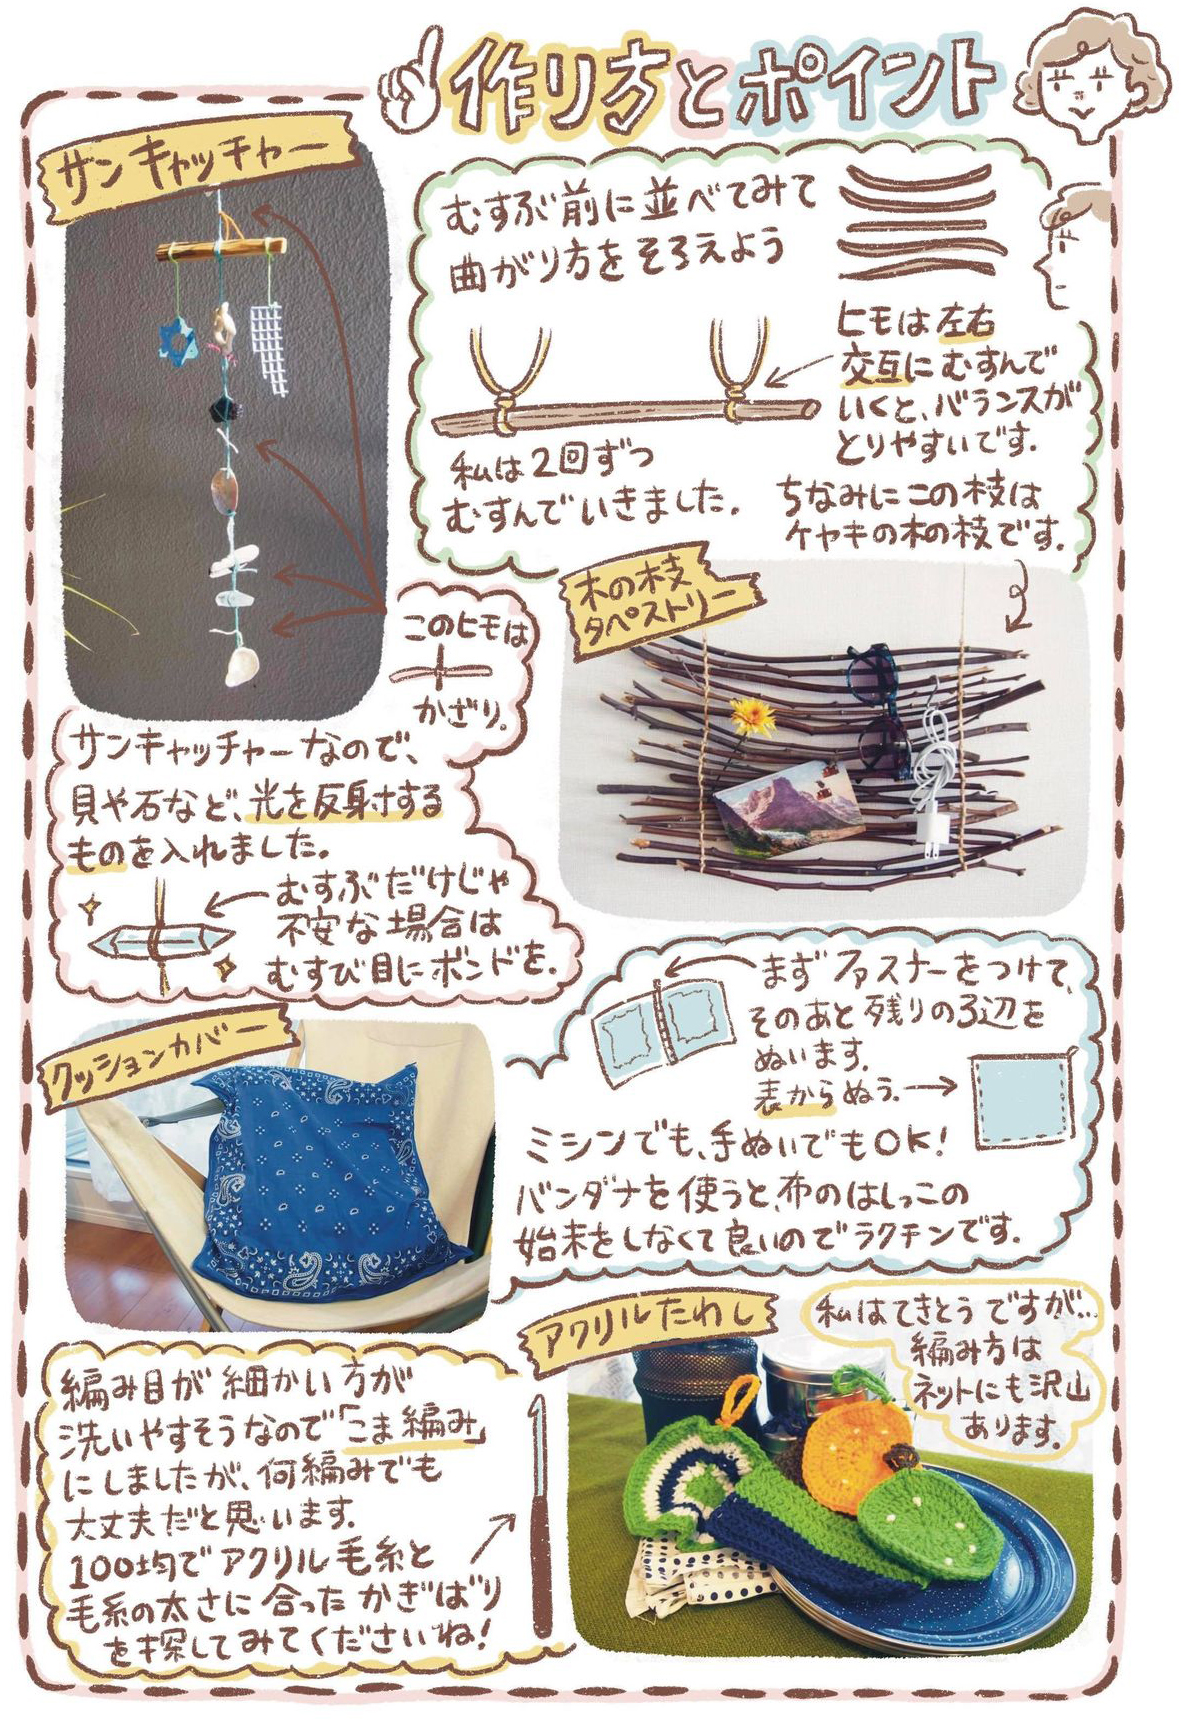 作り方とポイント
サンキャッチャー
むすぶ前に並べてみて
曲がり方をそろえよう
ヒモは左右
交互にむすんで
いくと、バランスが
とりやすいです。
私は2回ずつ
むすんでいきました。
ちなみにこの枝は
ケヤキの木の枝です。
木の枝
タペストリー
このヒモは
かざり。
サンキャッチャーなので、
貝や石など、光を反射する
ものを入れました。
むすぶだけじゃ
不安な場合は
むすび目にボンドを。
クッションカバー
まずファスナーをつけて、
そのあと残りの3辺を
ぬいます。
表からぬう。
ミシンでも、手ぬいでもOK!
バンダナを使うと、布のはしっこの
始末をしなくて良いのでラクチンです。
アクリルたわし
私はてきとうですが…
編み方は
ネットにも沢山
あります。
編み目が細かい方が
洗いやすそうなので「こま編み」
にしましたが、何編みでも
大丈夫だと思います。
100均でアクリル毛糸と
毛糸の太さに合ったかぎばり
を探してみてくださいね!